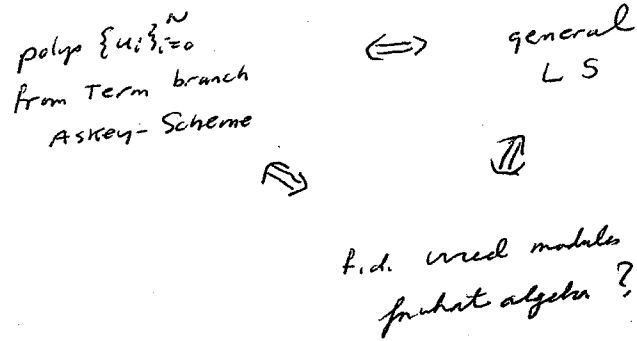 polys {u_i}_{i=0}^N
from Term branch
Askey-Scheme
⟺
general
L S
f.d. irred modules
for what algebra ?